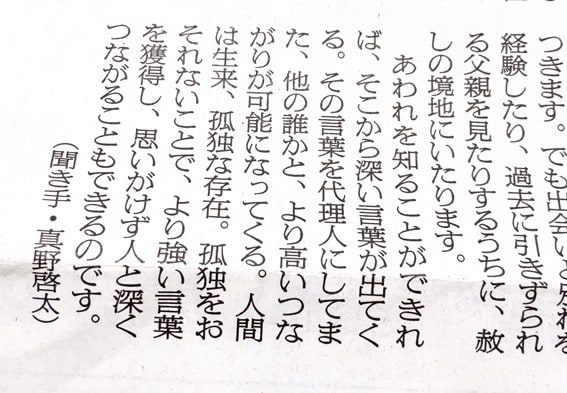 つきます。でも出会いと別れを
経験したり、過去に引きずられ
る父親を見たりするうちに、赦
しの境地にいたります。
　あわれを知ることができれ
ば、そこから深い言葉が出てく
る。その言葉を代理人にしてま
た、他の誰かと、より高いつな
がりが可能になってくる。人間
は生来、孤独な存在。孤独をお
それないことで、より強い言葉
を獲得し、思いがけず人と深く
つながることもできるのです。
（聞き手・真野啓太）